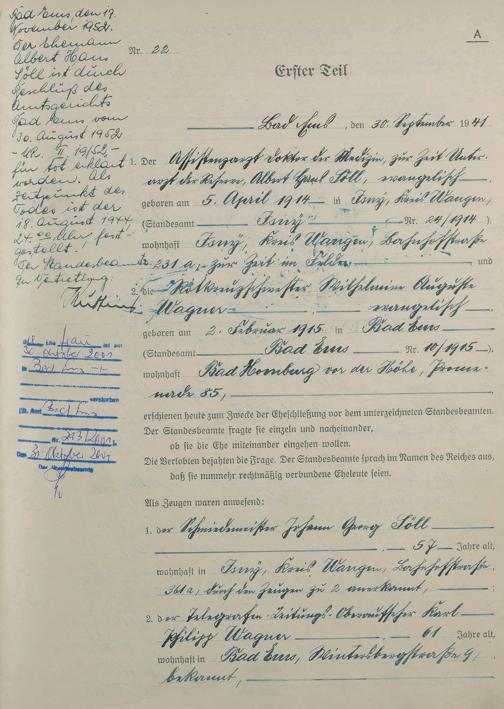 Bad Ems, den 19.
November 1952.
Der Ehemann
Albert Hans
Söll ist durch
Beschluß des
Amtsgerichts
Bad Ems vom
30. August 1952
II 19/52,-
für tot erklärt
worden. Als
Zeitpunkt des
Todes ist der
18. August 1944,
24.00 Uhr fest-
gestellt.
Der Standesbeamte
In Vertretung
A
Nr. 22
Erster Teil
Bad Ems, den 30. September 1941.
1. Der Assistenzarzt Doktor der Medizin, zur Zeit Unter-
arzt der Reserve, Albert Söll, evangelisch
geboren am 5. April 1914 in Isny, Kreis Wangen,
(Standesamt Isny Nr. 24/1914),
wohnhaft Isny, Kreis Wangen, Bahnhofstraße
231a, zur Zeit im Felde und
2. die Rotkreuzschwester Wilhelmine Auguste
Wagner evangelisch
geboren am 2. Februar 1915 in Bad Ems
(Standesamt Bad Ems Nr. 10/1915),
wohnhaft Bad Homburg vor der Höhe, Prome-
nade 85,
erschienen heute zum Zwecke der Eheschließung vor dem unterzeichneten Standesbeamten.
Der Standesbeamte fragte sie einzeln und nacheinander,
ob sie die Ehe miteinander eingehen wollen.
Die Verlobten bejahten die Frage. Der Standesbeamte sprach im Namen des Reiches aus,
daß sie nunmehr rechtmäßig verbundene Eheleute seien.
Als Zeugen waren anwesend:
1. der Schmiedemeister Johann Georg Söll
57 Jahre alt,
wohnhaft in Isny, Kreis Wangen, Bahnhofstraße
361a, durch den Zeugen zu 2 anerkannt, ;
2. der Telegrafen-Leitungs-Oberaufseher Karl
Philipp Wagner 61 Jahre alt,
wohnhaft in Bad Ems, Wintersbergstraße 9,
bekannt,
Die Ehefrau ist am
Oktober 2001
in Bad Ems
verstorben
(St. Amt Bad Ems
Nr. 213/2001).
Den 31. Oktober 2001
Der Standesbeamte